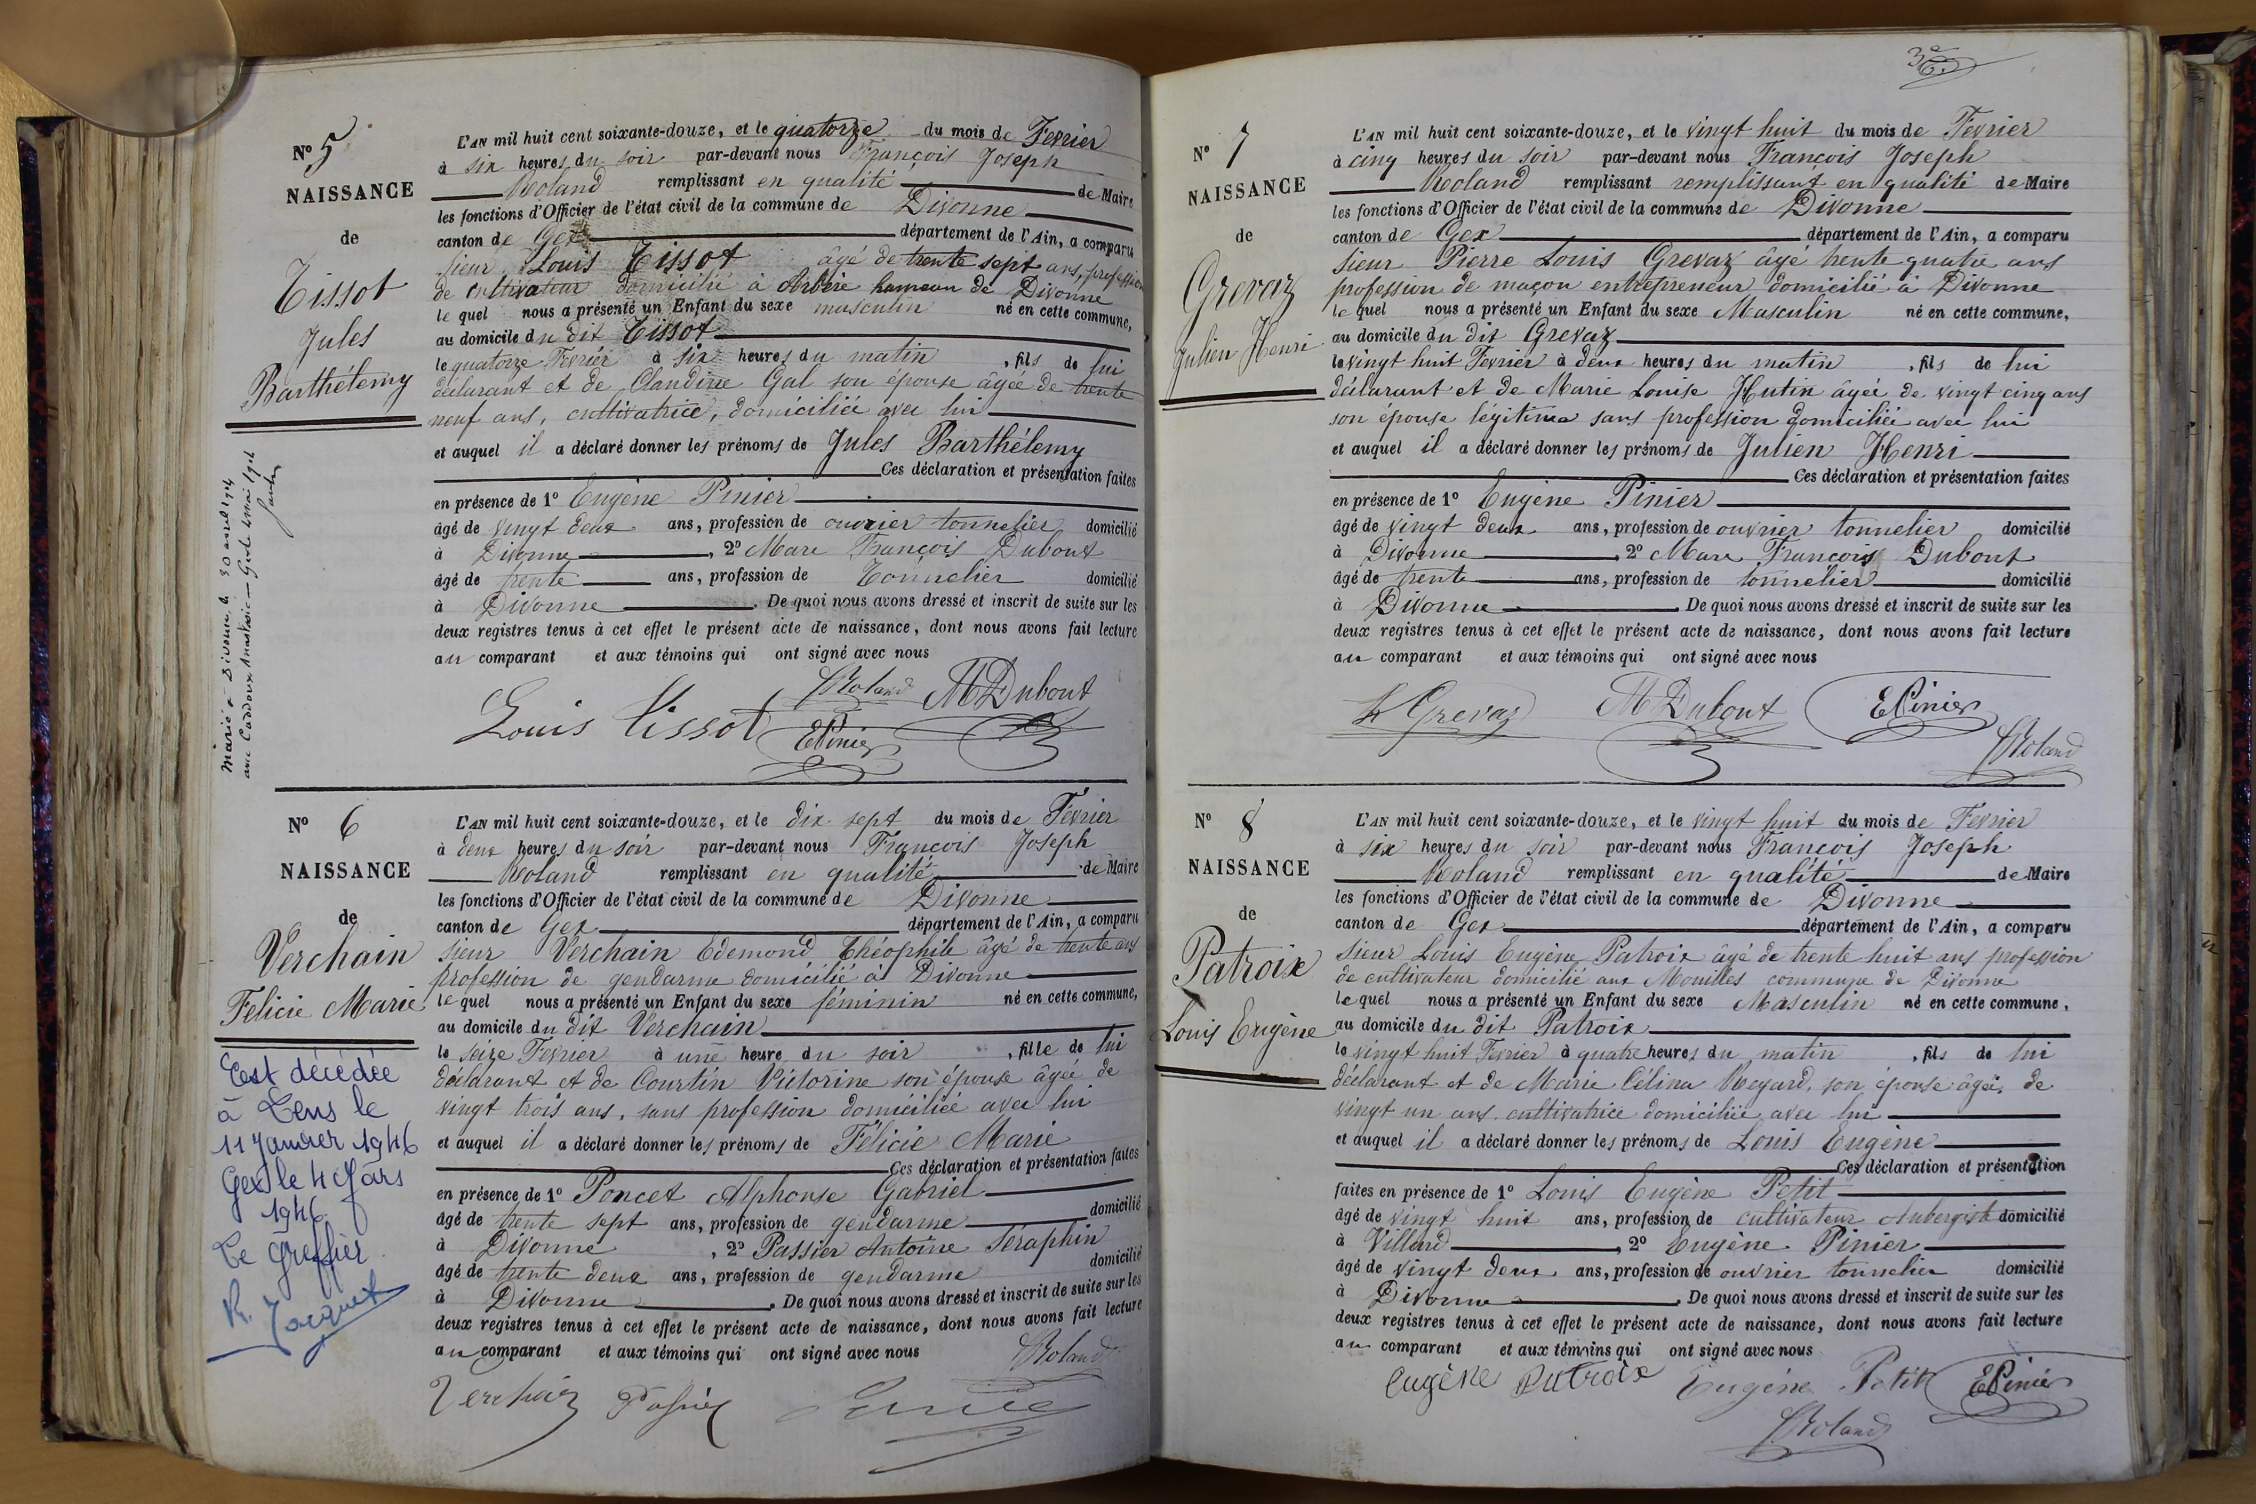 Nº 5
NAISSANCE
de
Tissot
Jules
Barthélemy
L'AN mil huit cent soixante-douze, et le quatorze du mois de Fevrier
à six heures du soir par-devant nous François Joseph
Roland remplissant en qualité de Maire
les fonctions d'Officier de l'état civil de la commune de Divonne
canton de Gex département de l'Ain, a comparu
sieur Louis Tissot âgé de trente sept ans, profession
de cultivateur domicilié à Arbère hameau de Divonne
le quel nous a présenté un Enfant du sexe masculin né en cette commune,
au domicile du dit Tissot
le quatorze Fevrier à six heures du matin, fils de lui
déclarant et de Claudine Gal son épouse âgée de trente
neuf ans, cultivatrice, domiciliée avec lui
et auquel il a déclaré donner les prénoms de Jules Barthélemy
Ces déclaration et présentation faites
en présence de 1º Eugène Pinier
âgé de vingt deux ans, profession de ouvrier tonnelier domicilié
à Divonne, 2º Marc François Dubout
âgé de trente ans, profession de Tonnelier domicilié
à Divonne. De quoi nous avons dressé et inscrit de suite sur les
deux registres tenus à cet effet le présent acte de naissance, dont nous avons fait lecture
au comparant et aux témoins qui ont signé avec nous
Roland MDubout
Louis Tissot EPinier
Marié à Divonne le 30 avril 1904
avec Caddoux Anastasie — Gex le 4 mai 1904
Nº 6
NAISSANCE
de
Verchain
Felicie Marie
Est décédée
à Lens le
11 Janvier 1946
Gex le 4 Mars
1946
Le Greffier
R. Jacquet
L'AN mil huit cent soixante-douze, et le dix sept du mois de Fevrier
à deux heures du soir par-devant nous François Joseph
Roland remplissant en qualité de Maire
les fonctions d'Officier de l'état civil de la commune de Divonne
canton de Gex département de l'Ain, a comparu
sieur Verchain Edemond Théophile âgé de trente ans
profession de gendarme domicilié à Divonne
le quel nous a présenté un Enfant du sexe féminin né en cette commune,
au domicile du dit Verchain
le seize Fevrier à une heure du soir, fille de lui
déclarant et de Courtin Victorine son épouse âgée de
vingt trois ans, sans profession domiciliée avec lui
et auquel il a déclaré donner les prénoms de Félicie Marie
Ces déclaration et présentation faites
en présence de 1º Poncet Alphonse Gabriel
âgé de trente sept ans, profession de gendarme domicilié
à Divonne, 2º Passier Antoine Séraphin
âgé de trente deux ans, profession de gendarme domicilié
à Divonne. De quoi nous avons dressé et inscrit de suite sur les
deux registres tenus à cet effet le présent acte de naissance, dont nous avons fait lecture
au comparant et aux témoins qui ont signé avec nous
Roland
Verchain Passier
Nº 7
NAISSANCE
de
Grevaz
Julien Henri
L'AN mil huit cent soixante-douze, et le vingt huit du mois de Fevrier
à cinq heures du soir par-devant nous François Joseph
Roland remplissant remplissant en qualité de Maire
les fonctions d'Officier de l'état civil de la commune de Divonne
canton de Gex département de l'Ain, a comparu
sieur Pierre Louis Grevaz âgé trente quatre ans
profession de maçon entrepreneur domicilié à Divonne
le quel nous a présenté un Enfant du sexe Masculin né en cette commune,
au domicile du dit Grevaz
le vingt huit Fevrier à deux heures du matin, fils de lui
déclarant et de Marie Louise Hutin âgée de vingt cinq ans
son épouse légitime sans profession domiciliée avec lui
et auquel il a déclaré donner les prénoms de Julien Henri
Ces déclaration et présentation faites
en présence de 1º Eugène Pinier
âgé de vingt deux ans, profession de ouvrier tonnelier domicilié
à Divonne, 2º Marc François Dubout
âgé de trente ans, profession de tonnelier domicilié
à Divonne. De quoi nous avons dressé et inscrit de suite sur les
deux registres tenus à cet effet le présent acte de naissance, dont nous avons fait lecture
au comparant et aux témoins qui ont signé avec nous
Grevaz MDubout EPinier
Roland
Nº 8
NAISSANCE
de
Patroix
Louis Eugène
L'AN mil huit cent soixante-douze, et le vingt huit du mois de Fevrier
à six heures du soir par-devant nous François Joseph
Roland remplissant en qualité de Maire
les fonctions d'Officier de l'état civil de la commune de Divonne
canton de Gex département de l'Ain, a comparu
sieur Louis Eugène Patroix âgé de trente huit ans profession
de cultivateur domicilié aux Mouilles commune de Divonne
le quel nous a présenté un Enfant du sexe Masculin né en cette commune,
au domicile du dit Patroix
le vingt huit Fevrier à quatre heures du matin, fils de lui
déclarant et de Marie Célina Regard, son épouse âgée de
vingt un ans cultivatrice domiciliée avec lui
et auquel il a déclaré donner les prénoms de Louis Eugène
Ces déclaration et présentation
faites en présence de 1º Louis Eugène Petit
âgé de vingt huit ans, profession de cultivateur Aubergiste domicilié
à Villard, 2º Eugène Pinier
âgé de vingt deux ans, profession de ouvrier tonnelier domicilié
à Divonne. De quoi nous avons dressé et inscrit de suite sur les
deux registres tenus à cet effet le présent acte de naissance, dont nous avons fait lecture
au comparant et aux témoins qui ont signé avec nous
Eugène Patroix Eugène Petit EPinier
Roland